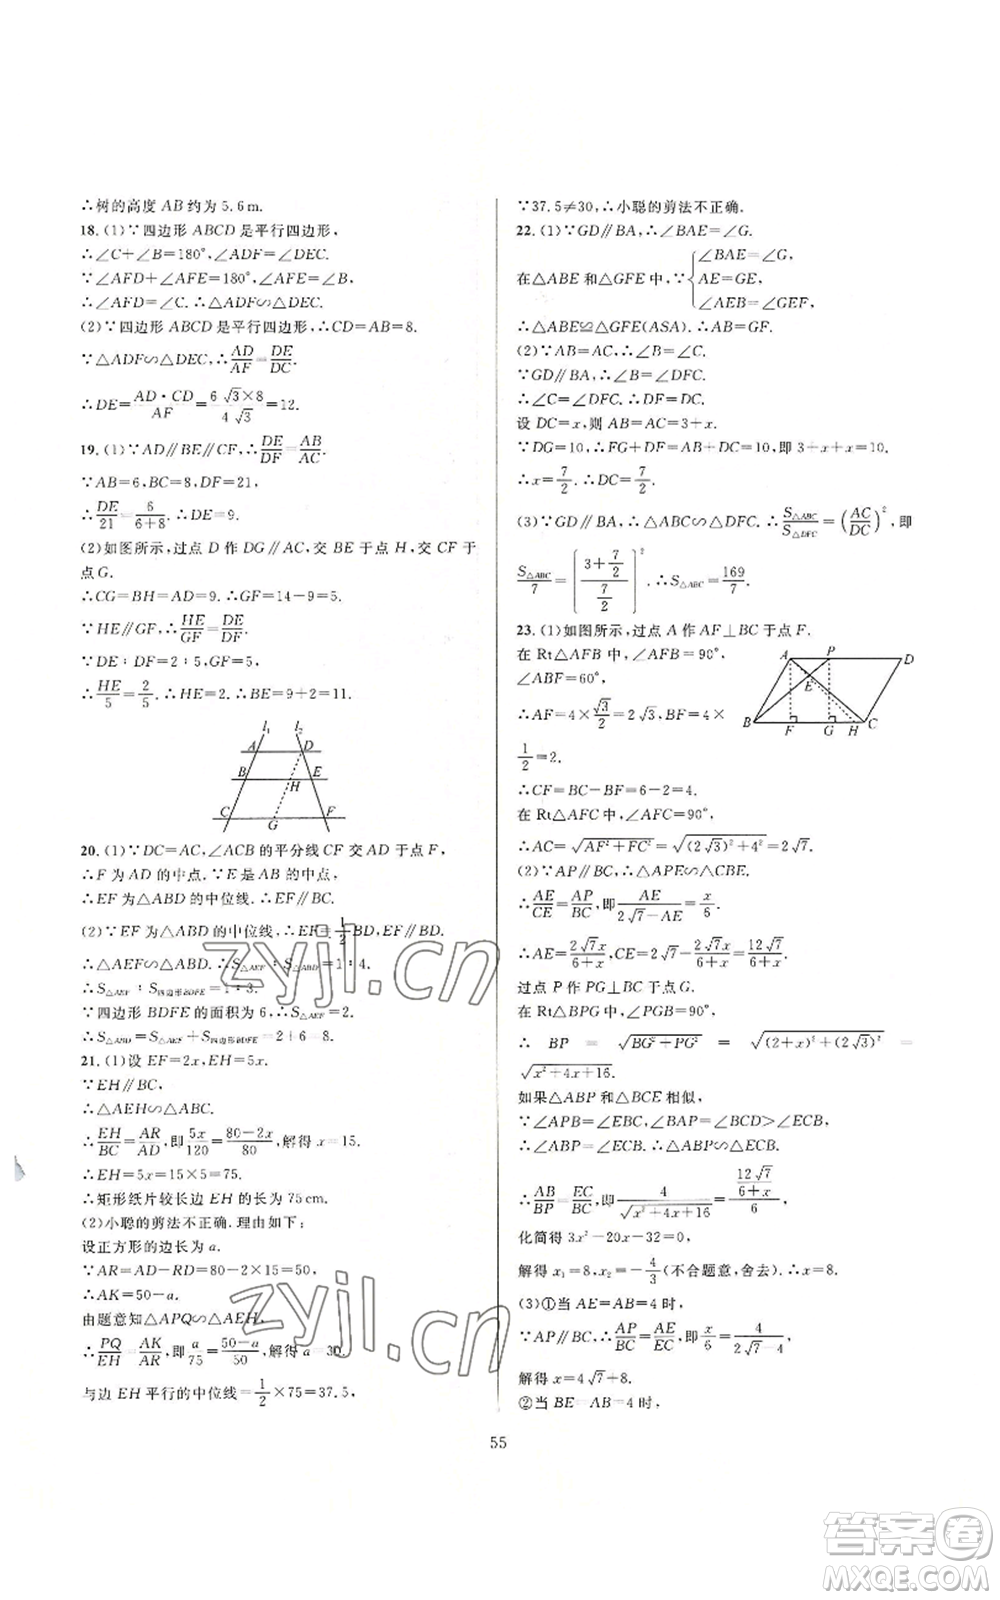 ∴树的高度 AB 约为 5.6 m.
18. (1)∵四边形 ABCD 是平行四边形，
∴∠C+∠B=180°，∠ADF=∠DEC.
∵∠AFD+∠AFE=180°，∠AFE=∠B，
∴∠AFD=∠C. ∴△ADF∽△DEC.
(2)∵四边形 ABCD 是平行四边形，∴CD=AB=8.
∵△ADF∽△DEC，∴AD/AF=DE/DC.
∴DE=AD·CD/AF=6√3×8/4√3=12.
19. (1)∵AD∥BE∥CF，∴DE/DF=AB/AC.
∵AB=6，BC=8，DF=21，
∴DE/21=6/(6+8). ∴DE=9.
(2)如图所示，过点 D 作 DG∥AC，交 BE 于点 H，交 CF 于
点 G.
∴CG=BH=AD=9. ∴GF=14-9=5.
∵HE∥GF，∴HE/GF=DE/DF.
∵DE∶DF=2∶5，GF=5，
∴HE/5=2/5. ∴HE=2. ∴BE=9+2=11.
l₁ l₂
A D
B H E
C G F
20. (1)∵DC=AC，∠ACB 的平分线 CF 交 AD 于点 F，
∴F 为 AD 的中点. ∵E 是 AB 的中点，
∴EF 为△ABD 的中位线. ∴EF∥BD.
(2)∵EF 为△ABD 的中位线，∴EF=1/2 BD，EF∥BD.
∴△AEF∽△ABD. ∴S△AEF∶S△ABD=1∶4.
∴S△AEF∶S四边形BDFE=1∶3.
∵四边形 BDFE 的面积为 6，∴S△AEF=2.
∴S△ABD=S△AEF+S四边形BDFE=2+6=8.
21. (1)设 EF=2x，EH=5x.
∵EH∥BC，
∴△AEH∽△ABC.
∴EH/BC=AR/AD，即5x/120=(80-2x)/80，解得 x=15.
∴EH=5x=15×5=75.
∴矩形纸片较长边 EH 的长为 75 cm.
(2)小聪的剪法不正确. 理由如下：
设正方形的边长为 a.
∵AR=AD-RD=80-2×15=50，
∴AK=50-a.
由题意知△APQ∽△AEH，
∴PQ/EH=AK/AR，即a/75=(50-a)/50，解得 a=30.
与边 EH 平行的中位线=1/2×75=37.5，
∵37.5≠30，∴小聪的剪法不正确.
22. (1)∵GD∥BA，∴∠BAE=∠G.
在△ABE 和△GFE 中，∵{∠BAE=∠G，
AE=GE，
∠AEB=∠GEF，
∴△ABE≌△GFE(ASA). ∴AB=GF.
(2)∵AB=AC，∴∠B=∠C.
∵GD∥BA，∴∠B=∠DFC.
∴∠C=∠DFC. ∴DF=DC.
设 DC=x，则 AB=AC=3+x.
∵DG=10，∴FG+DF=AB+DC=10，即 3+x+x=10.
∴x=7/2. ∴DC=7/2.
(3)∵GD∥BA，∴△ABC∽△DFC. ∴S△ABC/S△DFC=(AC/DC)²，即
S△ABC/7=[(3+7/2)/(7/2)]². ∴S△ABC=169/7.
23. (1)如图所示，过点 A 作 AF⊥BC 于点 F.
在 Rt△AFB 中，∠AFB=90°，
∠ABF=60°，
∴AF=4×√3/2=2√3，BF=4×
1/2=2.
A P D
E
B F G H C
∴CF=BC-BF=6-2=4.
在 Rt△AFC 中，∠AFC=90°，
∴AC=√(AF²+FC²)=√((2√3)²+4²)=2√7.
(2)∵AP∥BC，∴△APE∽△CBE.
∴AE/CE=AP/BC，即AE/(2√7-AE)=x/6.
∴AE=2√7x/(6+x)，CE=2√7-2√7x/(6+x)=12√7/(6+x).
过点 P 作 PG⊥BC 于点 G.
在 Rt△BPG 中，∠PGB=90°，
∴ BP = √(BG²+PG²) = √((2+x)²+(2√3)²) =
√(x²+4x+16).
如果△ABP 和△BCE 相似，
∵∠APB=∠EBC，∠BAP=∠BCD>∠ECB，
∴∠ABP=∠ECB. ∴△ABP∽△ECB.
∴AB/BP=EC/BC，即4/√(x²+4x+16)=(12√7/(6+x))/6，
化简得 3x²-20x-32=0，
解得 x₁=8，x₂=-4/3(不合题意，舍去). ∴x=8.
(3)①当 AE=AB=4 时，
∵AP∥BC，∴AP/BC=AE/EC，即x/6=4/(2√7-4)，
解得 x=4√7+8.
②当 BE=AB=4 时，
55
zyjl.cn
zyjl.cn
答案圈
MXQE.COM